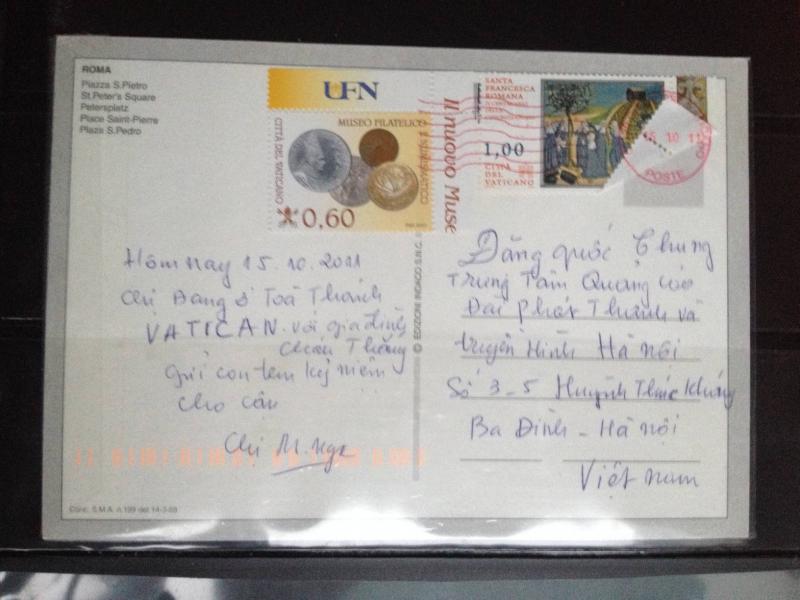 ROMA
Piazza S.Pietro
St.Peter's Square
Petersplatz
Place Saint-Pierre
Plaza S.Pedro
UFN
MUSEO FILATELICO
E NUMISMATICO
CITTÀ DEL VATICANO
0,60
Il nuovo Muse
SANTA
FRANCESCA
ROMANA
1,00
CITTÀ
DEL
VATICANO
15 10 11
POSTE
Hôm nay 15.10.2011
chị đang ở Toà Thánh
VATICAN với gia đình
cháu Thắng
Gửi con tem kỷ niệm
cho cậu
Chị M. Nga
© EDIZIONI INDACO S.N.C.
Đặng quốc Chung
Trung Tâm Quảng cáo
Đài phát Thanh và
truyền Hình Hà Nội
Số 3-5 Huỳnh Thúc Kháng
Ba Đình - Hà nội
Việt nam
Conc. S.M.A. n.199 del 14-3-88